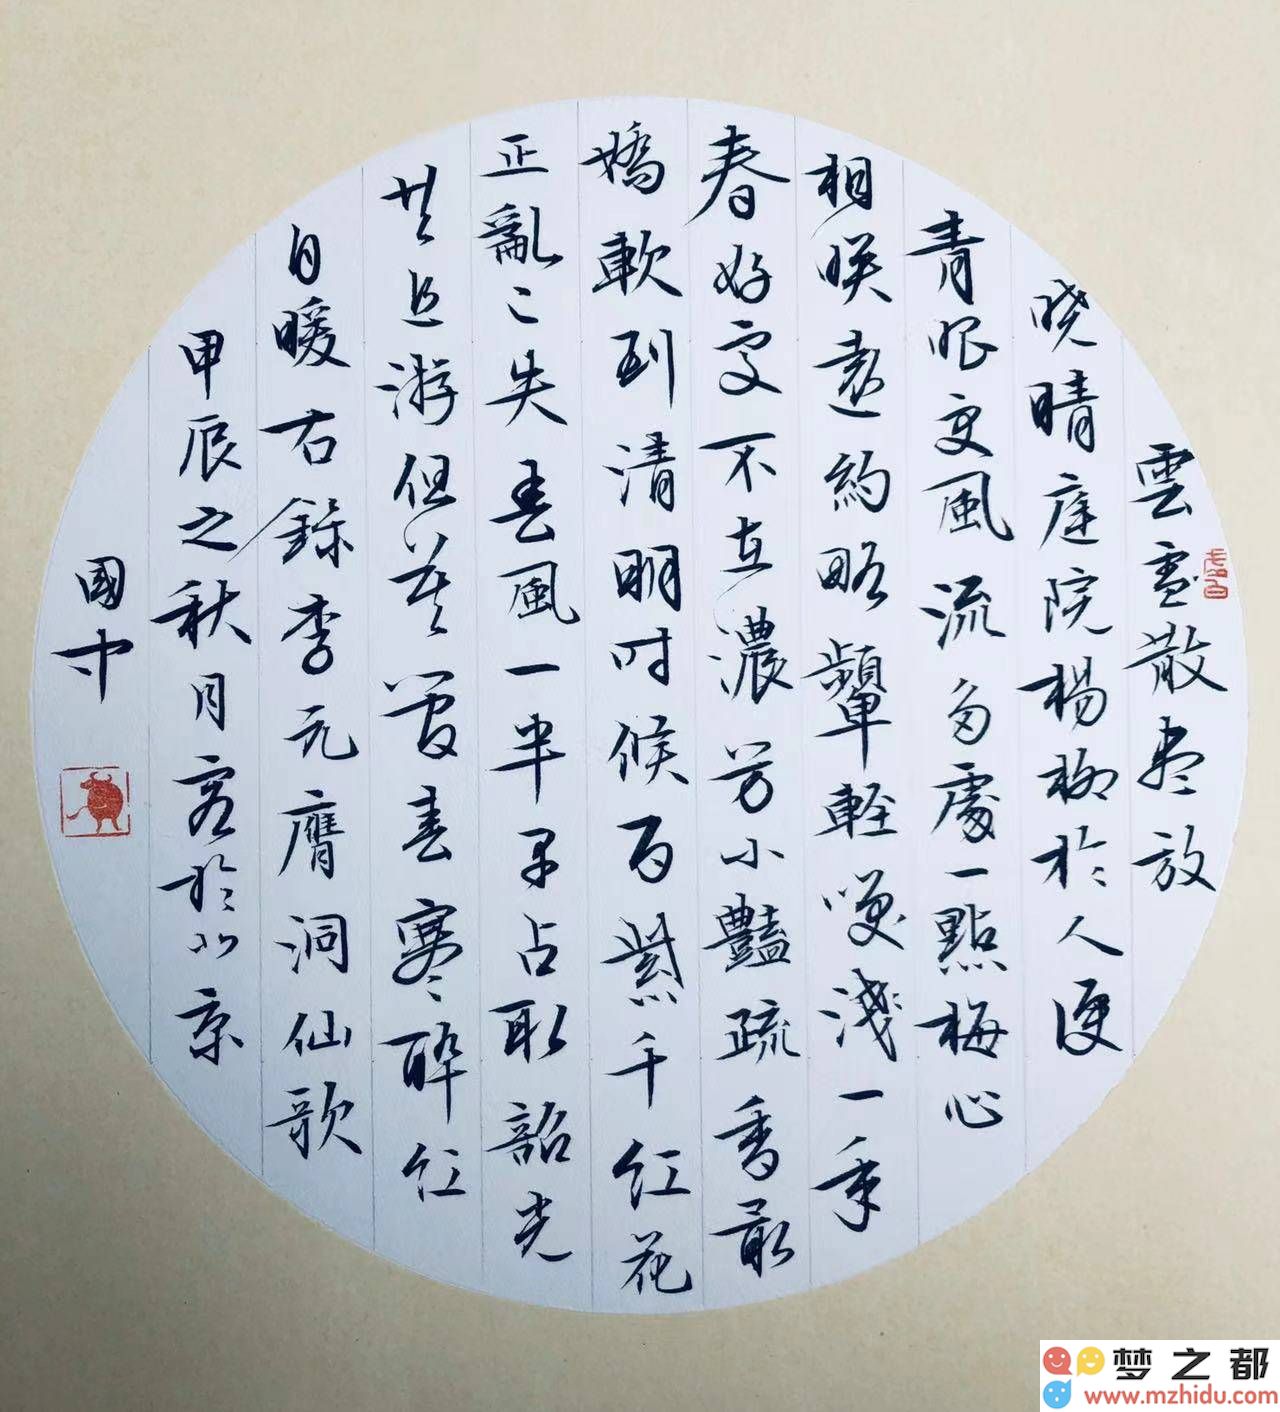 雲雪散盡放
晓晴庭院楊柳於人便
青眼更風流多處一點梅心
相映遠約略顰輕咲淺一年
春好處不在濃芳小豔疏香最
嬌軟到清明时候百紫千紅花
正亂已失春風一半早占取韶光
共追游但莫管春寒醉紅
自暖右錄李元膺洞仙歌
甲辰之秋月客於北京
國
梦之都
www.mzhidu.com